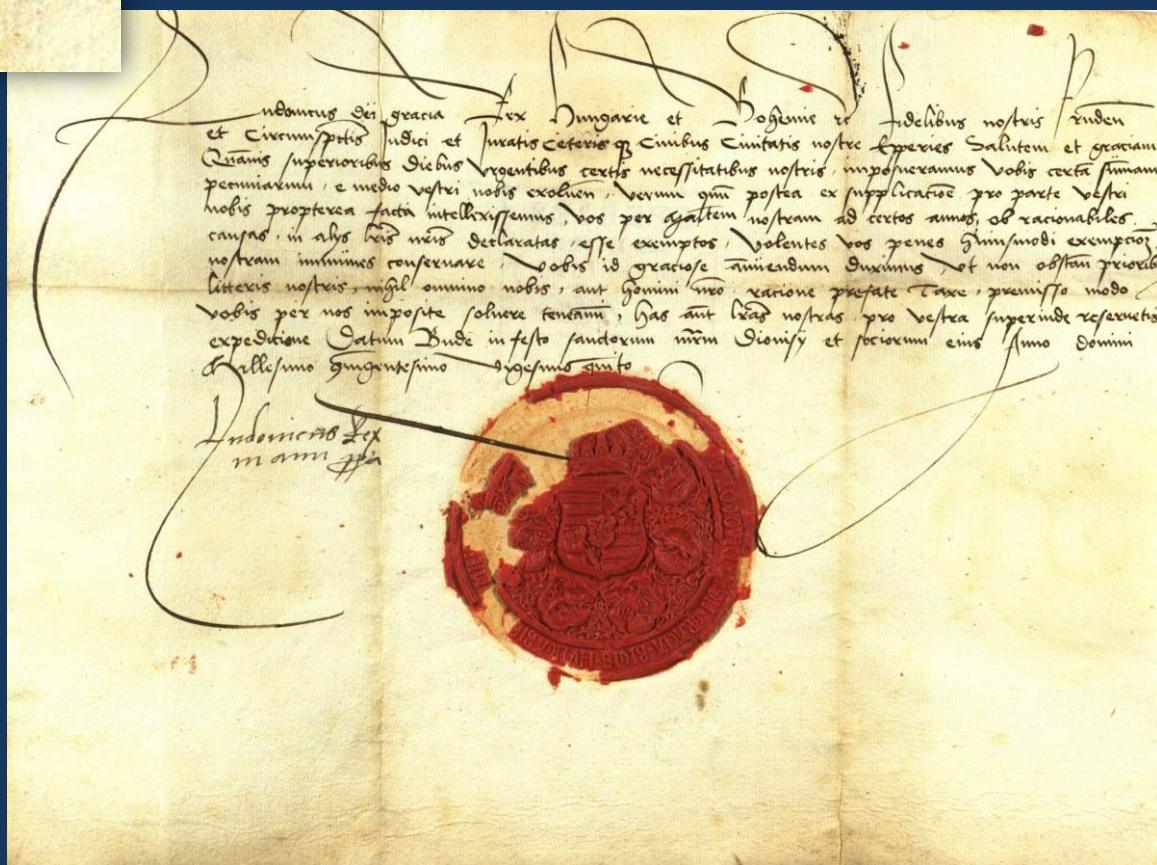 Ludovicus dei gracia Rex Hungarie et Bohemie etc Fidelibus nostris Pruden
et Circumspctis Judici et Juratis Ceteris qz Civibus Civitatis nostre Eperies Salutem et graciam
Quamvis superioribus diebus urgentibus certis necessitatibus nostris, imposueramus vobis certa summam
pecuniarum, e medio vestri nobis exolven, verum qum postea ex supplicacioe pro parte vestri
nobis propterea facta intellexissemus, vos per Maiestatem nostram ad certos annos, ob racionabiles
causas, in alys lris nris declaratas, esse exemptos, volentes vos penes huiusmodi exempcioz
nostram immunes conservare, vobis id graciose annuendum duximus, ut non obstan prioribus
litteris nostris, nihil omnino nobis, aut homini nro racione prefate Taxe, premisso modo
vobis per nos imposite solvere teneamini, has aut lras nostras pro vestra superinde reservetis
expedicione Datum Bude in festo sanctorum mrm Dionisy et sociorum eius Anno domini
Millesimo quingentesimo vigesimo quinto
Ludovicus Rex
manu ppa